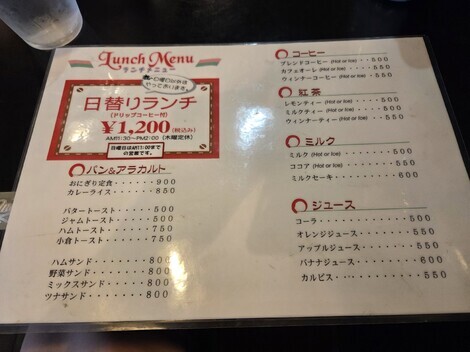 Lunch Menu
ランチメニュー
日曜日以外は
やっております。
日替りランチ
(ドリップコーヒー付)
¥1,200 (税込み)
AM11:30〜PM2:00 (木曜定休)
日曜日はAM11:00まで
の営業です。
パン&アラカルト
おにぎり定食・・・・・・900
カレーライス・・・・・・850
バタートースト・・・・・500
ジャムトースト・・・・・550
ハムトースト・・・・・・750
小倉トースト・・・・・・750
ハムサンド・・・・・・・800
野菜サンド・・・・・・・800
ミックスサンド・・・・・800
ツナサンド・・・・・・・800
コーヒー
ブレンドコーヒー (Hot or Ice)・・500
カフェオーレ (Hot or Ice)・・・・550
ウィンナーコーヒー (Hot or Ice)・・550
紅茶
レモンティー (Hot or Ice)・・・・550
ミルクティー (Hot or Ice)・・・・550
ウィンナーティー (Hot or Ice)・・550
ミルク
ミルク (Hot or Ice)・・・・・・500
ココア (Hot or Ice)・・・・・・550
ミルクセーキ・・・・・・・600
ジュース
コーラ・・・・・・・・・・550
オレンジジュース・・・・・550
アップルジュース・・・・・550
バナナジュース・・・・・・600
カルピス・・・・・・・・・550